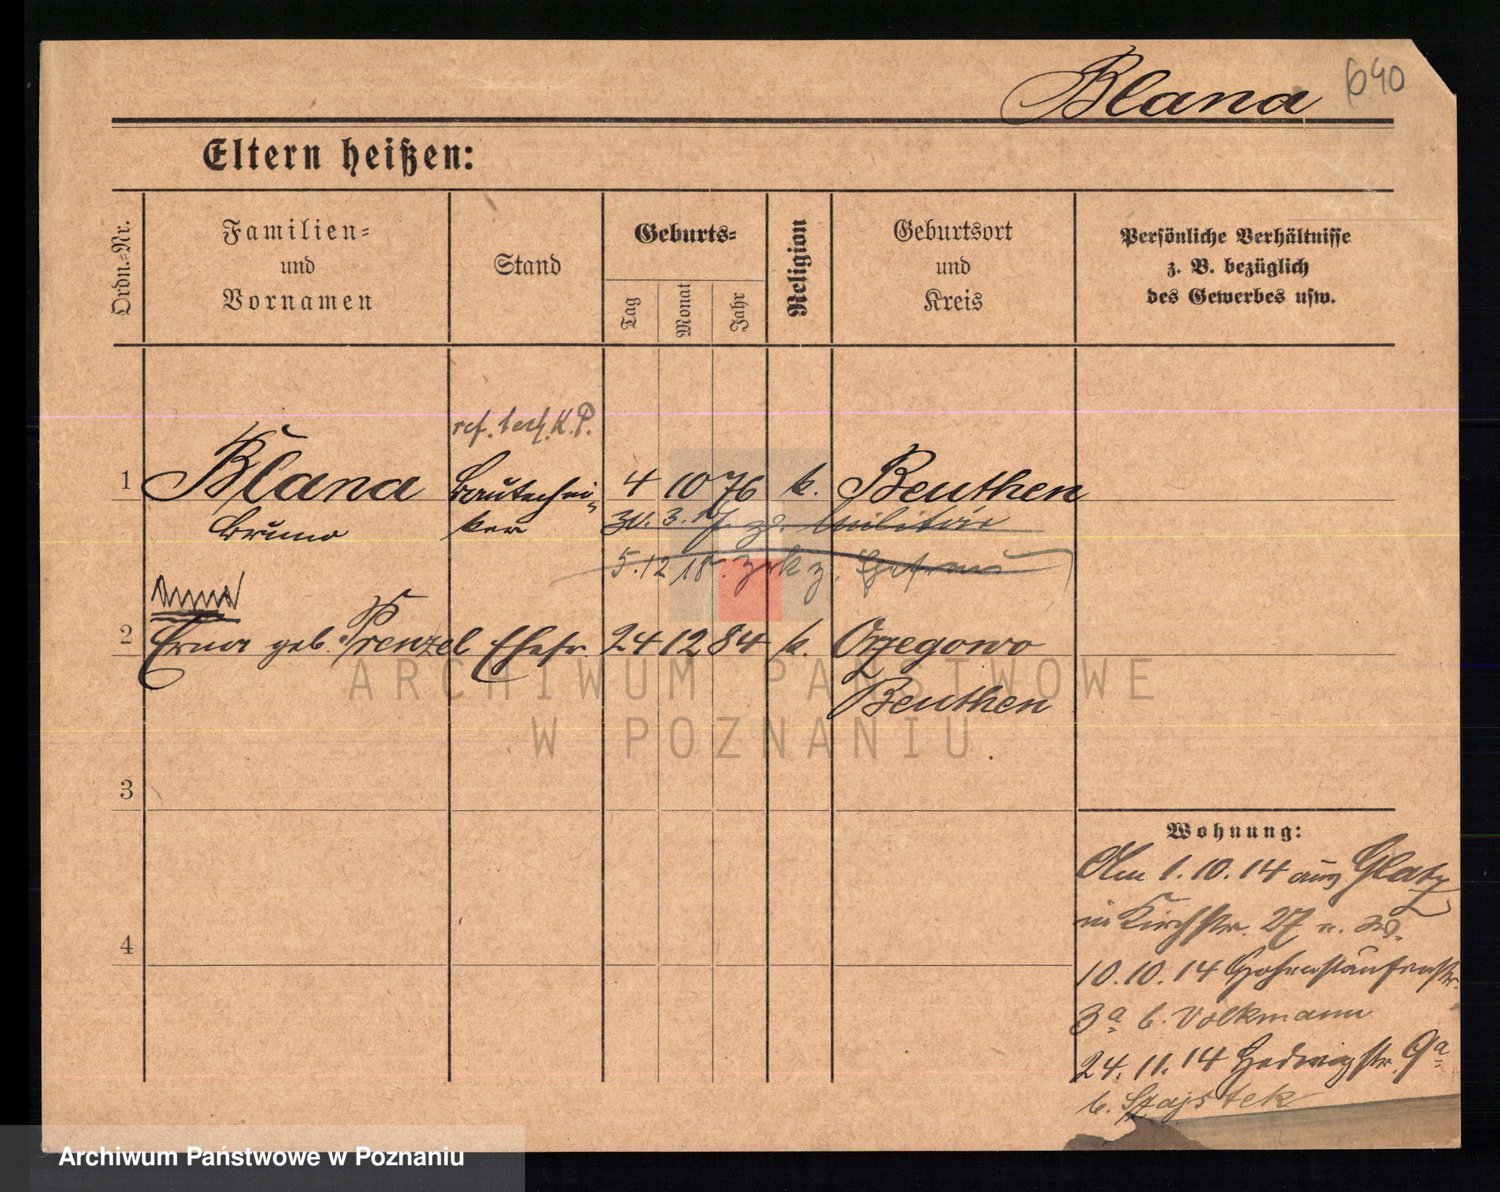 Blana 690
Eltern heißen:
Ordn.-Nr.
Familien-
und
Vornamen
Stand
Geburts-
Tag
Monat
Jahr
Religion
Geburtsort
und
Kreis
Persönliche Verhältnisse
z. B. bezüglich
des Gewerbes usw.
K.P.
1 Blana Bautechni- 4 10 76 k. Beuthen
Bruno ker 30.3. z. Militär
5.12 18. zrk z. Ehefrau
2 Erna geb. Prenzel Ehefr. 24 12 84 k. Orzegowo
Beuthen
3
4
Wohnung:
Am 1.10.14 aus Glatz
in Kirchstr. 27 n.
10.10.14 Hohenstaufenstr.
3a b. Volkmann
24.11.14 Hedwigstr. 9a
b. Szajstek
ARCHIWUM PAŃSTWOWE
W POZNANIU
Archiwum Państwowe w Poznaniu